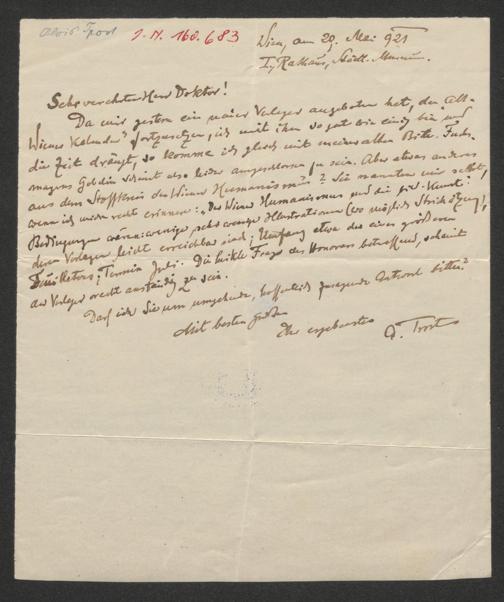 Alois Trost
I.N. 160.683
Wien, am 20. Mai 921
I, Rathaus, Städt. Museum.
Sehr verehrter Herr Doktor!
Da mir gestern ein neuer Verleger angeboten hat, den „Alt-
Wiener Kalender“ fortzusetzen, ich mit ihm so gut wie einig bin und
die Zeit drängt, so komme ich gleich mit meiner alten Bitte.
scheint also leider ausgeschlossen zu sein. Aber etwas anderes
aus dem Stoffkreis des Wiener Humanismus? Sie nannten mir selbst,
wenn ich mich recht erinnere: „Der Wiener Humanismus und die Kunst“.
Bedingungen wären: wenige, sehr wenige Illustrationen (wo möglich Strichätzung),
deren Vorlagen leicht erreichbar sind; Umfang etwa der eines größeren
Feuilletons; Termin Juli. Die heikle Frage des Honorars betreffend, scheint
der Verleger recht anständig zu sein.
Darf ich Sie um umgehende, hoffentlich zusagende Antwort bitten?
Mit besten Grüßen
Ihr ergebenster
A. Trost